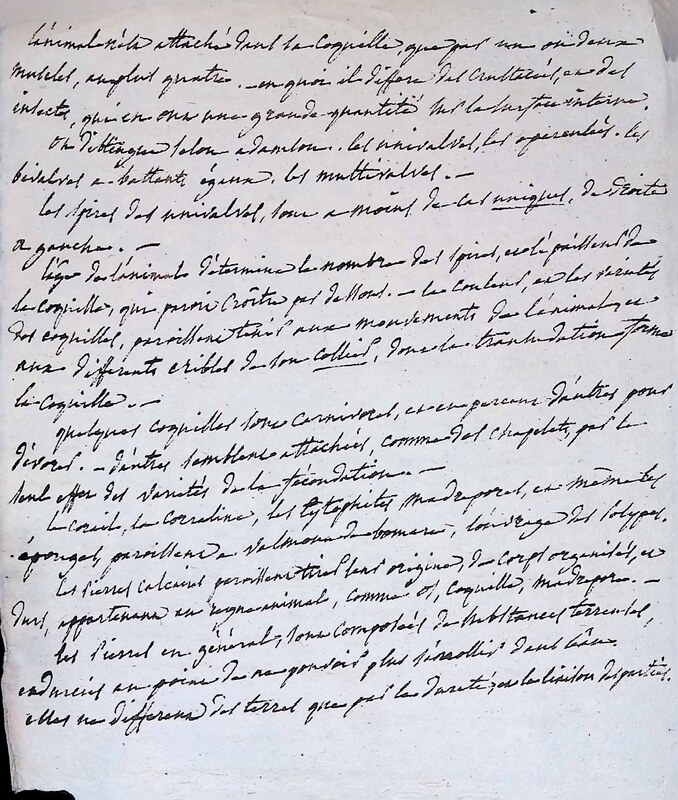 l'animal n'est attaché dans sa coquille, que par un ou deux
muscles, au plus quatre. - en quoi il differe des crustacés, et des
insectes, qui en ont une grande quantité sur la surface interne.
on distingue selon adanson. les univalves, les operculés. les
bivalves a battants égaux. les multivalves. -
les spires des univalves, sont a moins de cas uniques, de droite
a gauche. -
l'âge de l'animal détermine le nombre des spires, et l'épaisseur de
la coquille, qui paroit croître par dessous. - la couleur, et les variétés
des coquilles, paroissent tenir aux mouvements de l'animal, et
aux differents cribles de son collier, dont la transudation forme
la coquille. -
quelques coquilles sont carnivores, et en percent d'autres pour
dévorer. - d'autres semblent attachées, comme des chapelets, par le
seul effet des variétés de la fécondation. -
le corail, la corraline, les lytophites, madrepores, et même les
éponges, paroissent a valmont de bomare, l'ouvrage des polypes.
les pierres calcaires paroissent tirer leur origine, de corps organisés, et
durs, appartenant au regne animal, comme os, coquille, madrepore. -
les pierres en général, sont composées de substances terrestres,
endurcies au point de ne pouvoir plus s'amollir dans l'eau.
elles ne different des terres que par la dureté, et la liaison des parties.